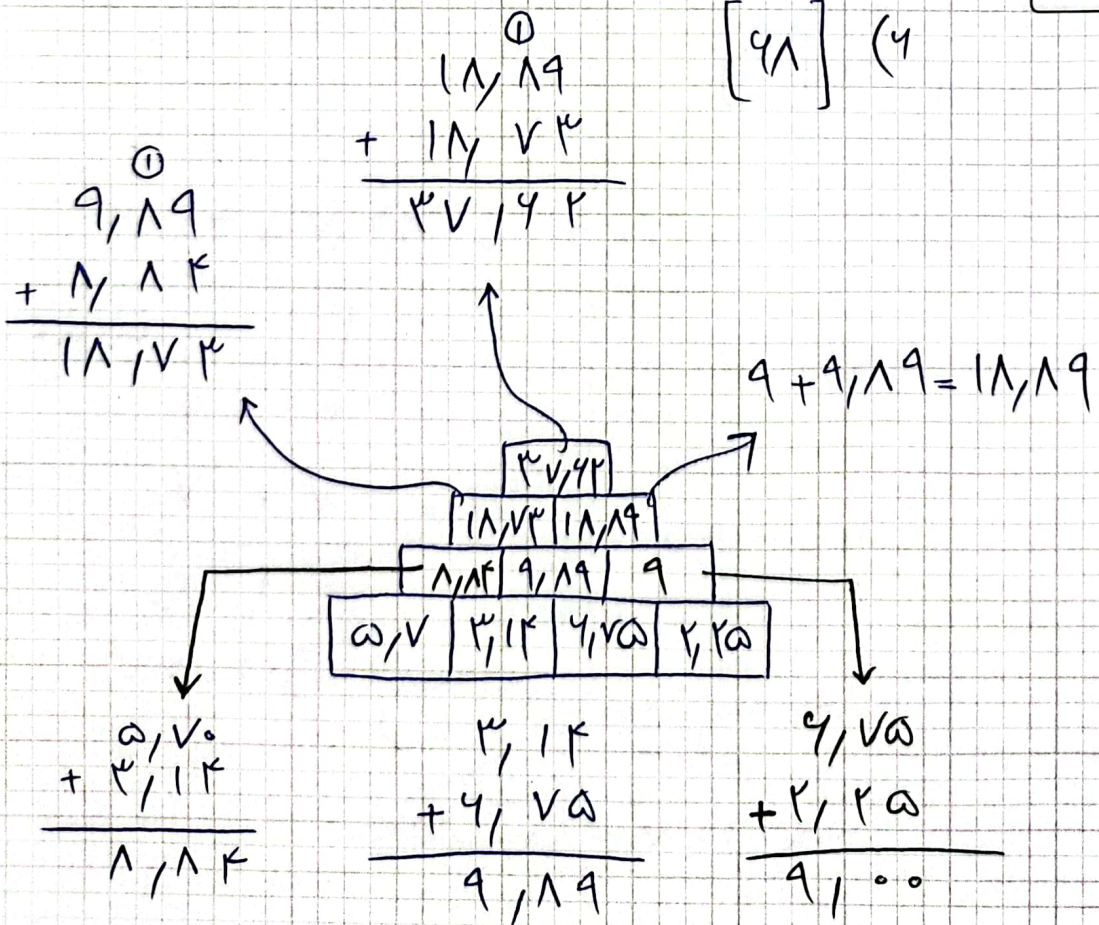 ۶) [۶۸]
①
۱۸٫۸۹
+ ۱۸٫۷۳
۳۷٫۶۲
①
۹٫۸۹
+ ۸٫۸۴
۱۸٫۷۳
۹ + ۹٫۸۹ = ۱۸٫۸۹
۳۷٫۶۲
۱۸٫۷۳ ۱۸٫۸۹
۸٫۸۴ ۹٫۸۹ ۹
۵٫۷ ۳٫۱۴ ۶٫۷۵ ۲٫۲۵
۵٫۷۰
+ ۳٫۱۴
۸٫۸۴
۳٫۱۴
+ ۶٫۷۵
۹٫۸۹
۶٫۷۵
+ ۲٫۲۵
۹٫۰۰